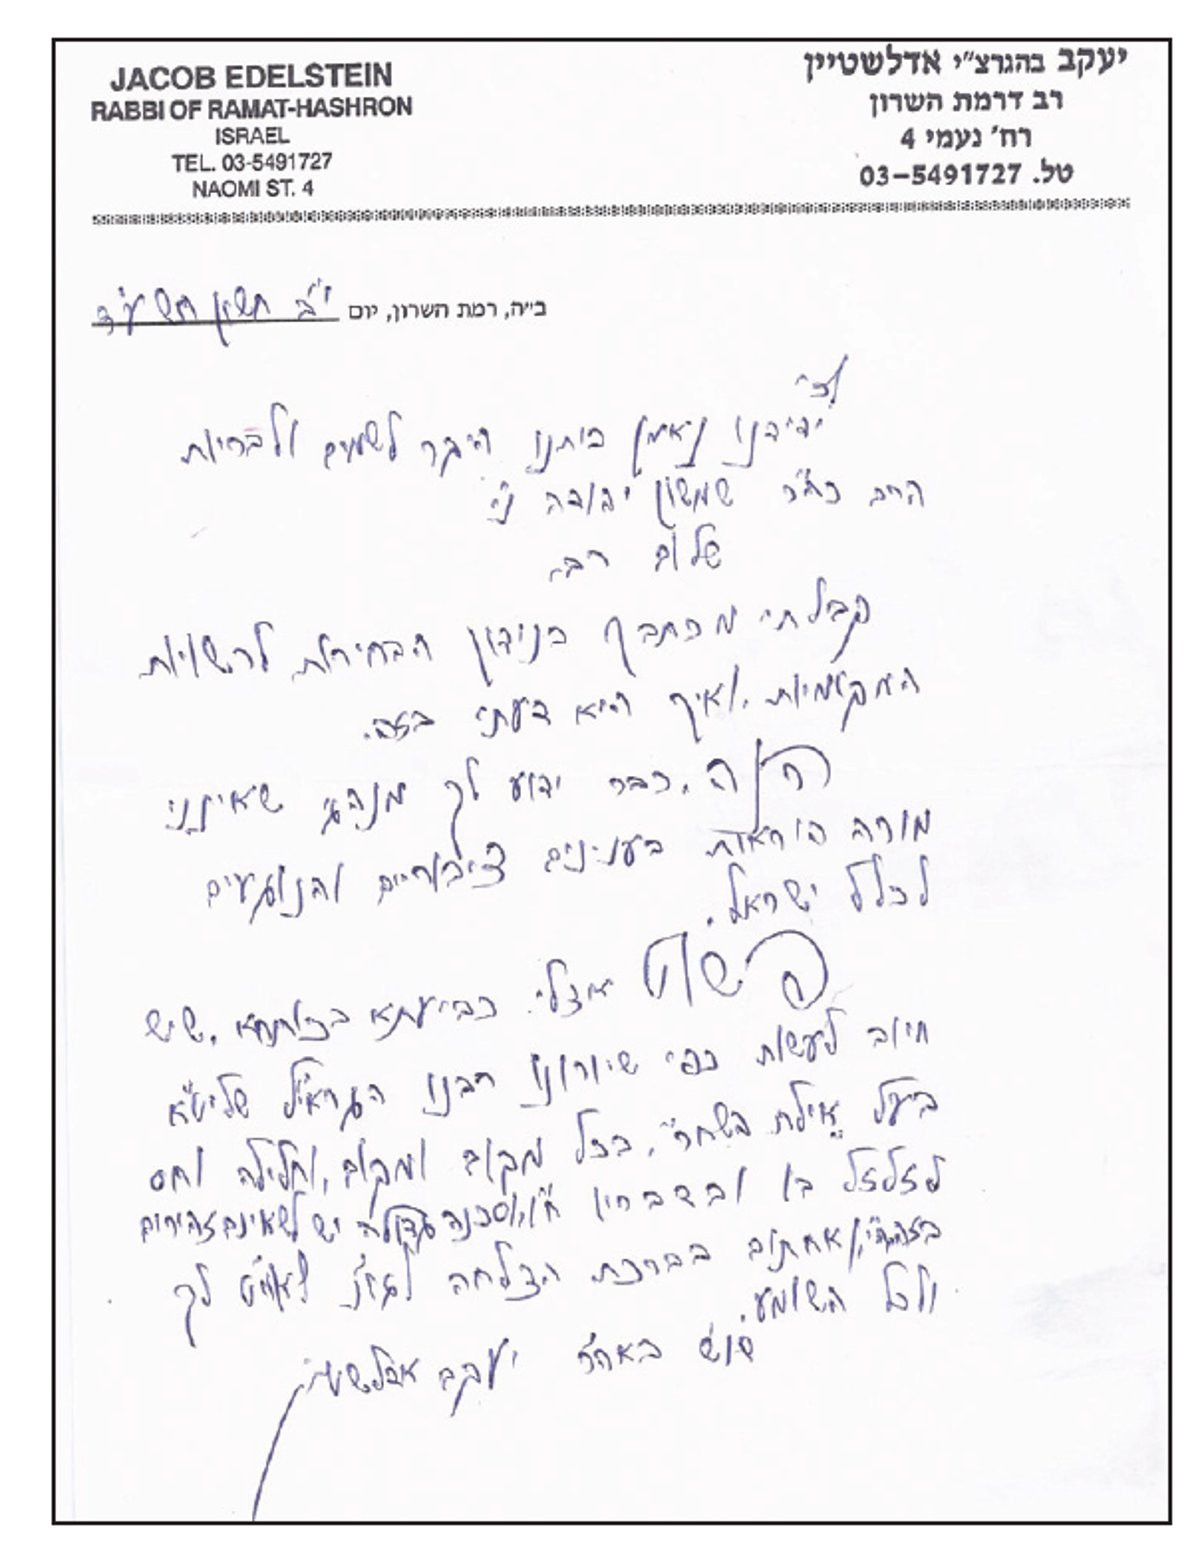 JACOB EDELSTEIN
RABBI OF RAMAT-HASHRON
ISRAEL
TEL. 03-5491727
NAOMI ST. 4
יעקב בהגרצ"י אדלשטיין
רב דרמת השרון
רח' נעמי 4
טל. 03-5491727
ב"ה, רמת השרון, יום י"ב חשון תשע"ד
לכ'
ידידנו נאמן ביתנו היקר לשמים ולבריות
הרב כה"ר שמשון יהודה נ"י
שלום רב.
קבלתי מכתבך בנידון הבחירות לרשויות
המקומיות, ואיך היא דעתי בזה.
הנה, כבר ידוע לך מנהגי שאינני
מורה הוראות בענינים ציבוריים והנוגעים
לכלל ישראל.
פשוט אצלי כביעתא בכותחא, שיש
חיוב לעשות כפי שיורונו רבנו הגראי"ל שליט"א
בעל "אילת השחר", בכל מקום ומקום, וחלילה וחס
לזלזל בו ובדבריו ח"ו, וסכנה גדולה יש לשאינם זהירים
בזה, ואחתום בברכת הצלחה לך
ולכל השומע.
באה"ר יעקב אדלשטיין